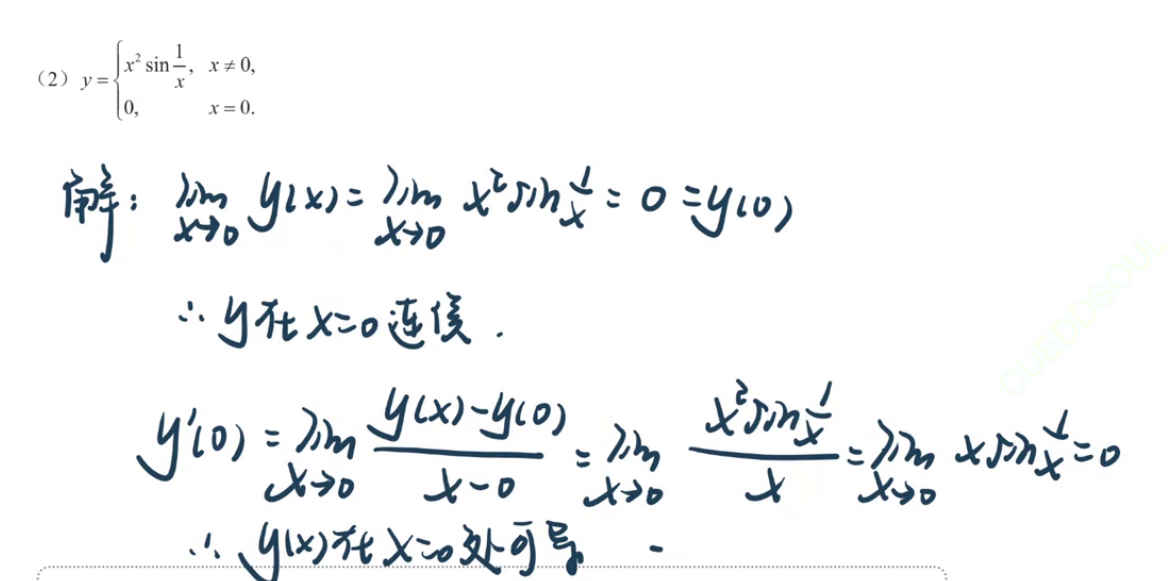 (2) y = { x² sin 1/x, x ≠ 0,
0, x = 0.
解: lim x→0 y(x) = lim x→0 x² sin 1/x = 0 = y(0)
∴ y在x=0连续.
y'(0) = lim x→0 (y(x)-y(0))/(x-0) = lim x→0 (x² sin 1/x)/x = lim x→0 x sin 1/x = 0
∴ y(x)在x=0处可导
CUEDOSOUL